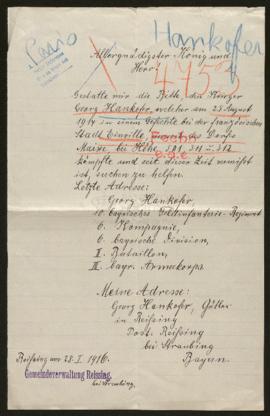 Paris
Hankofer
Allergnädigster König und
Herr!
4753
Gestatte mir die Bitte, den Bürger
Georg Hankofer, welcher am 28. August
1914 in einem Gefechte bei der französischen
Stadt Einville, des Dorfes
Maixe bei Höhe 301 311 u. 312
kämpfte und seit dieser Zeit vermißt
ist, suchen zu helfen.
Letzte Adresse:
Georg Hankofer,
10. bayrisches Feldinfanterie-Regiment
6. Kompagnie,
6. bayrische Division,
I. Bataillon,
II. bayr. Armeekorps.
Meine Adresse:
Georg Hankofer, Gütler
in Reißing
Post: Reißing
bei Straubing
Bayern.
Reißing am 28. I. 1916.
Gemeindeverwaltung Reissing.
bei Straubing.